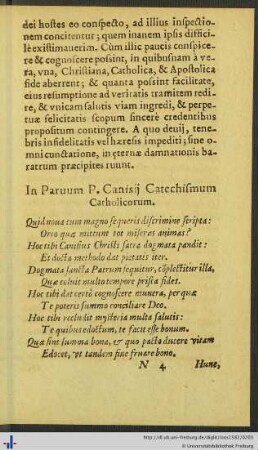 dei hostes eo conspecto, ad illius inspectio-
nem concitentur; quem inanem ipsis diffici-
lè existimauerim. Cùm illic paucis conspice-
re & cognoscere possint, in quibusnam à ve-
ra, vna, Christiana, Catholica, & Apostolica
fide aberrent; & quanta possint facilitate,
eius resumptione ad veritatis tramitem redi-
re, & vnicam salutis viam ingredi, & perpe-
tuæ felicitatis scopum sincerè credentibus
propositum contingere. A quo deuij, tene-
bris infidelitatis vel hæresis impediti; sine o-
mni cunctatione, in æternæ damnationis ba-
ratrum præcipites ruunt.
In Paruum P. Canisij Catechismum
Catholicorum.
Quid noua tum magno sequeris discrimine scripta:
Orco quæ mittunt tot miseras animas?
Hoc tibi Canisius Christi sacra dogmata pandit:
Et docta methodo dat pietatis iter.
Dogmata sancta Patrum sequitur, cōplectitur illa,
Quæ voluit multo tempore prisca fides.
Hoc tibi dat certò cognoscere munera, per quæ
Te poteris summo conciliare Deo.
Hoc tibi recludit mysteria multa salutis:
Te quibus edoctum, te facit esse bonum.
Quæ sint summa bona, & quo pacto ducere vitam
Edocet, vt tandem fine fruare bono.
N 4 Hunc,
http://dl.ub.uni-freiburg.de/diglit/
© Universitätsbibliothek Freiburg